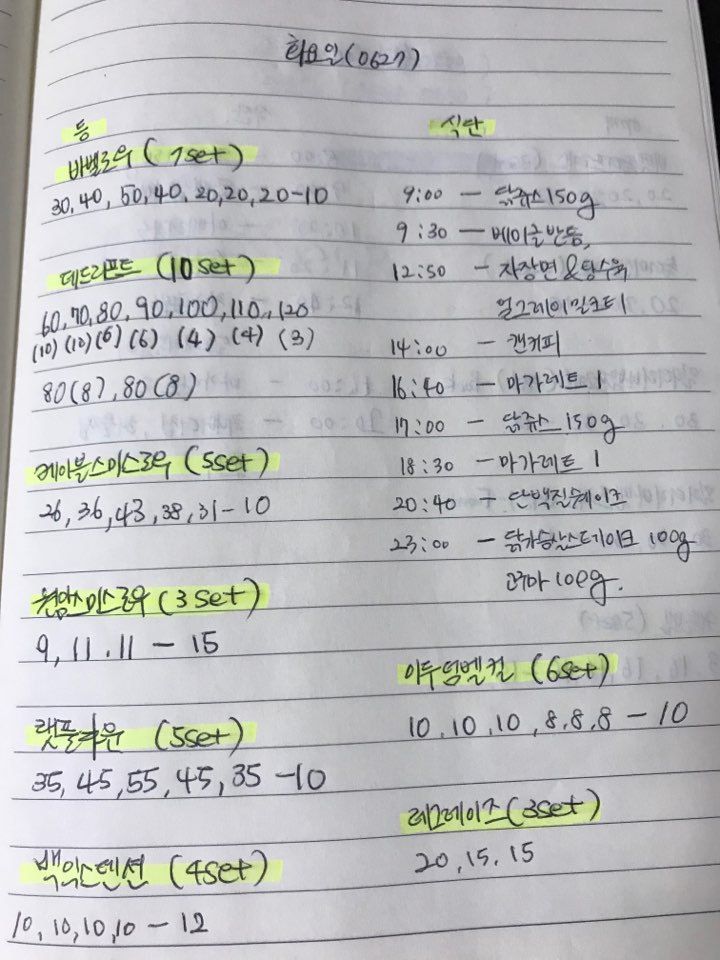 화요일(0627)
등
바벨로우 (7set)
30,40, 50,40, 20,20,20-10
데드리프트 (10set)
60,70,80,90,100,110,120
(10)(10)(6)(6)(4)(4)(3)
80(8), 80(8)
케이블스미스로우 (5set)
26,36,43,38,31-10
원암스미스로우 (3set)
9,11,11-15
랫풀다운 (5set)
35,45,55,45,35-10
백익스텐션 (4set)
10,10,10,10-12
식단
9:00 - 닭쥬스150g
9:30 - 베이글반등,
12:50 - 자장면&탕수육
얼그레이밀크티1
14:00 - 캔커피
16:40 - 마가레트1
17:00 - 닭쥬스150g
18:30 - 마가레트1
20:40 - 단백질쉐이크
23:00 - 닭가슴살스테이크 100g
고구마 100g.
이두덤벨컬 (6set)
10,10,10,8,8,8-10
레그레이즈 (3set)
20,15,15